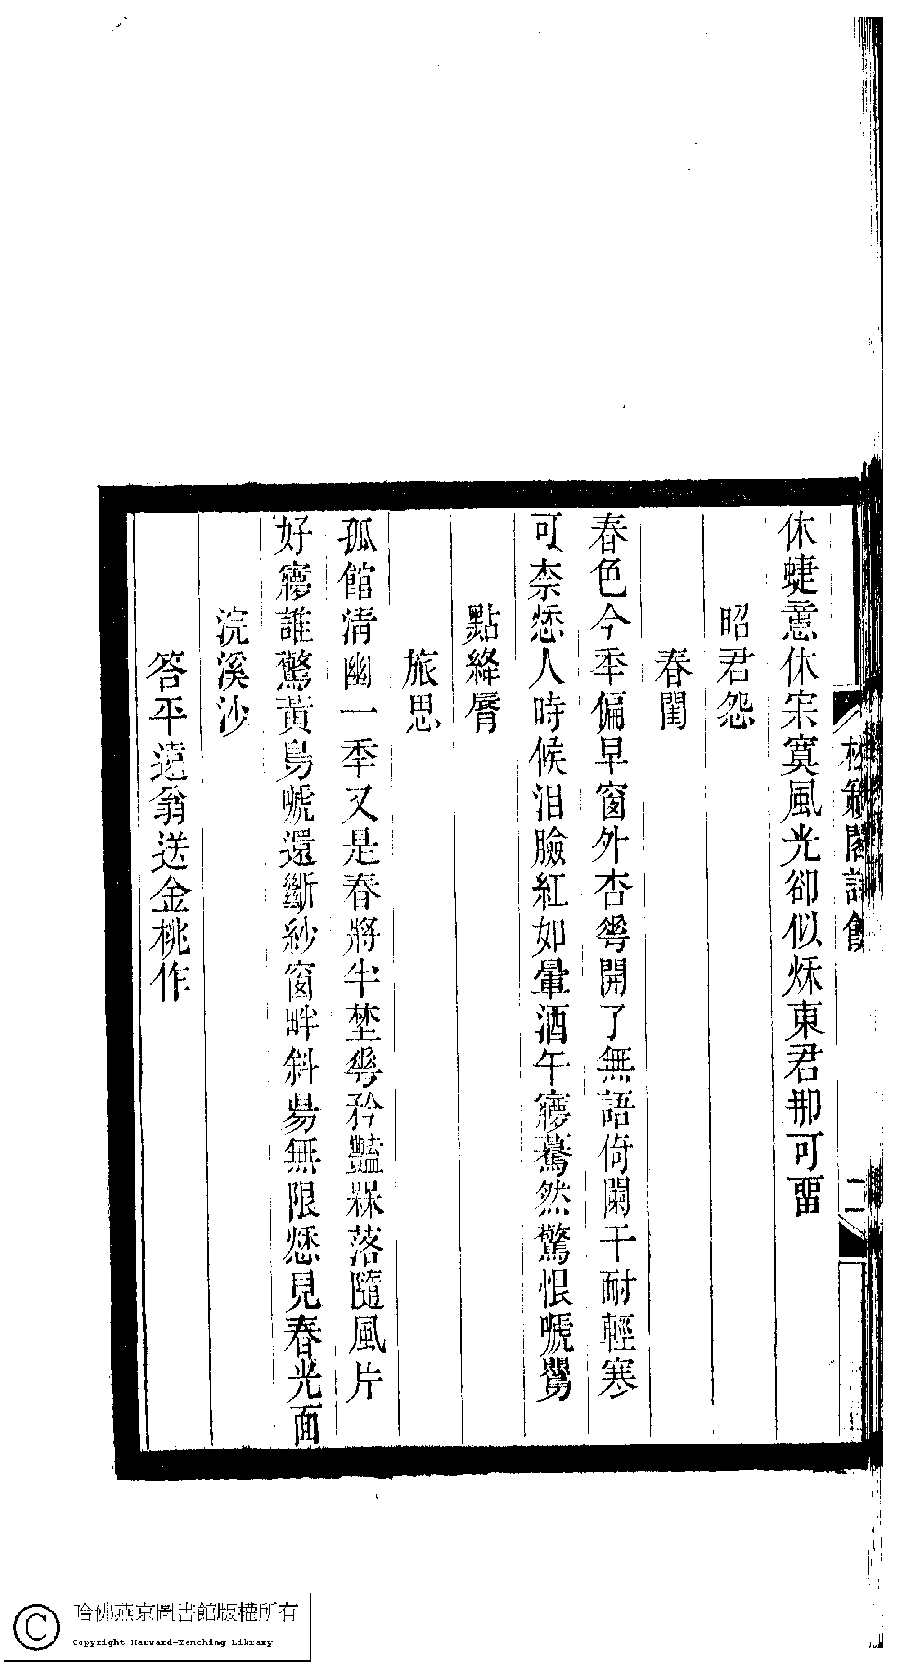 休蜨意休宋寞風光卻似烁東君那可畱
昭君怨
春闺
春色今秊偏早窗外杏蕚開了無語倚闌干耐輕寒
可柰愁人時候泪臉紅如暈酒午㝱驀然驚恨嗁鸎
點絳脣
旅思
孤館清幽一秊又是春將半埜蕚矜豔槑落隨風片
好㝱誰驚黃鳥嗁還斷紗窗畔斜昜無限愁見春光面
浣溪沙
答平遠翁送金桃作
二
哈佛燕京圖書館版權所有
Copyright Harvard-Yenching Library